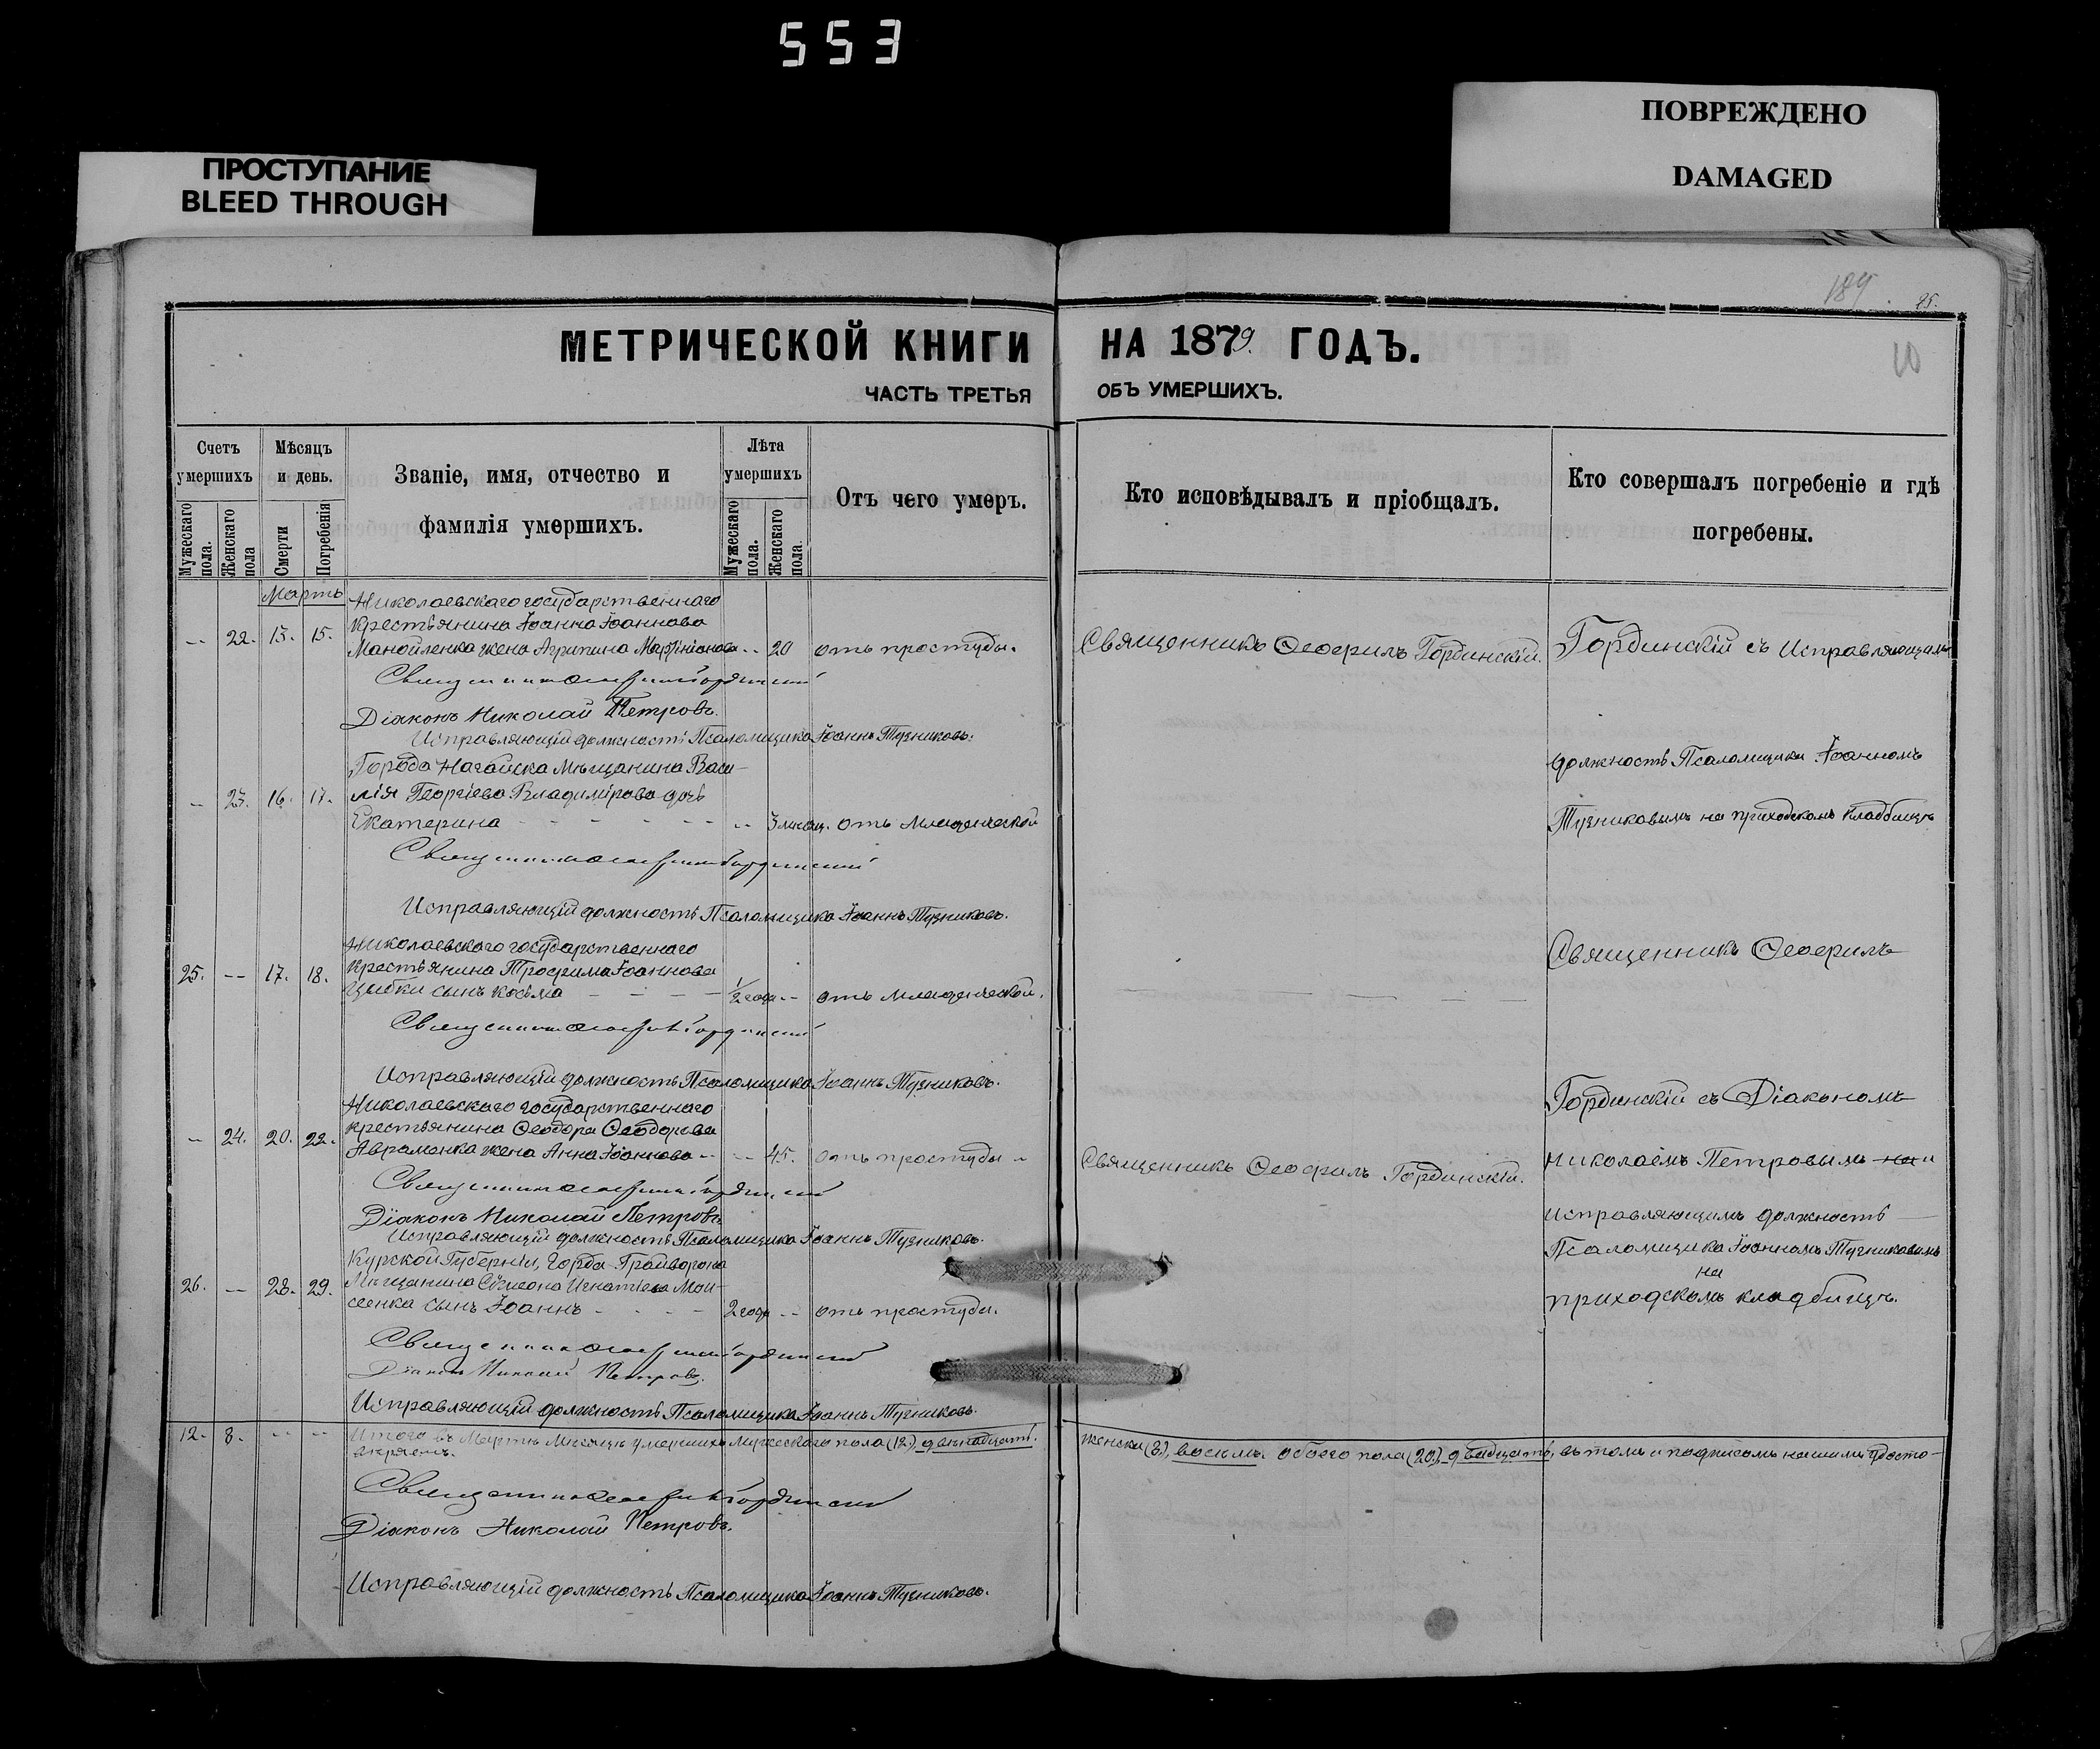 553
ПОВРЕЖДЕНО
DAMAGED
ПРОСТУПАНИЕ
BLEED THROUGH
189
95.
10
МЕТРИЧЕСКОЙ КНИГИ НА 1879. ГОДЪ.
ЧАСТЬ ТРЕТЬЯ ОБЪ УМЕРШИХЪ.
Счетъ умершихъ
Мужескаго пола.
Женскаго пола
Мѣсяцъ и день.
Смерти
Погребенія
Званіе, имя, отчество и
фамилія умершихъ.
Лѣта умершихъ
Мужескаго пола.
Женскаго пола.
Отъ чего умеръ.
Кто исповѣдывалъ и пріобщалъ.
Кто совершалъ погребеніе и гдѣ
погребены.
Мартъ
Николаевскаго государственнаго
крестьянина Іоанна Іоаннова
-- 22. 13. 15. Манойленка жена Агрипина -- 20 отъ простуды. Священникъ Ѳеофилъ Гординскій. Гординскій съ Исправляющимъ
Священникъ Ѳеофилъ Гординскій
Діаконъ Николай Петровъ.
Исправляющій должность Псаломщика Іоаннъ Тузниковъ.
Города Ногайска Мѣщанина Васи-
должность Псаломщика Іоанномъ
-- 23. 16. 17. лія Георгіева Владимірова дочь
Екатерина -- 3 мѣсяц. отъ младенческой Тузниковымъ на приходскомъ кладбищѣ
Священникъ Ѳеофилъ Гординскій
Исправляющій должность Псаломщика Іоаннъ Тузниковъ.
Николаевскаго государственнаго
Священникъ Ѳеофилъ
25. -- 17. 18. крестьянина Трофима Іоаннова
Цыбки сынъ Косьма 1/2 года -- отъ младенческой.
Священникъ Ѳеофилъ Гординскій
Исправляющій должность Псаломщика Іоаннъ Тузниковъ.
Николаевскаго государственнаго
Гординскій съ Діакономъ
-- 24. 20. 22. крестьянина Ѳеодора Ѳеодорова
Авраменка жена Анна Іоаннова -- 45. отъ простуды Священникъ Ѳеофилъ Гординскій. Николаемъ Петровымъ на и
Священникъ Ѳеофилъ Гординскій
Діаконъ Николай Петровъ
Исправляющимъ должность
Исправляющій должность Псаломщика Іоаннъ Тузниковъ.
Псаломщика Іоанномъ Тузниковымъ
Курской Губерніи, Города Грайворона
на
26. -- 28. 29. Мѣщанина Сѵмеона Игнатіева Мои-
сеенка сынъ Іоаннъ 2 года -- отъ простуды. приходскомъ кладбищѣ.
Священникъ Ѳеофилъ Гординскій
Діаконъ Николай Петровъ.
Исправляющій должность Псаломщика Іоаннъ Тузниковъ.
12. 8. -- -- Итого въ Мартѣ Мѣсяцѣ умершихъ мужескаго пола (12.) двѣнадцать. женска (8.), восемь. обоего пола (20.) двадцать, въ томъ и подписомъ нашимъ удосто-
вѣряемъ.
Священникъ Ѳеофилъ Гординскій
Діаконъ Николай Петровъ.
Исправляющій должность Псаломщика Іоаннъ Тузниковъ.